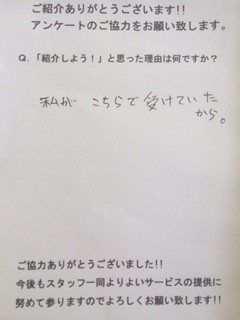 ご紹介ありがとうございます!!
アンケートのご協力をお願い致します。
Q.「紹介しよう!」と思った理由は何ですか？
私が こちらで受けていた
から。
ご協力ありがとうございました!!
今後もスタッフ一同よりよいサービスの提供に
努めて参りますのでよろしくお願い致します!!